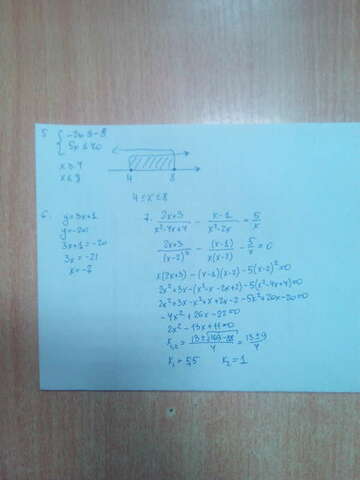 5. { -2x ≤ -8
5x ≤ 40
x ≥ 4
x ≤ 8
4 8
4 ≤ x ≤ 8
6. y = 3x+1
y = -20
3x+1 = -20
3x = -21
x = -7
7. (2x+3)/(x²-4x+4) - (x-1)/(x²-2x) = 5/x
(2x+3)/(x-2)² - (x-1)/(x(x-2)) - 5/x = 0
x(2x+3) - (x-1)(x-2) - 5(x-2)² = 0
2x²+3x-(x²-x-2x+2)-5(x²-4x+4)=0
2x²+3x-x²+x+2x-2-5x²+20x-20=0
-4x²+26x-22=0
2x²-13x+11=0
x₁,₂ = (13±√(169-88))/4 = (13±9)/4
x₁ = 5,5 x₂ = 1